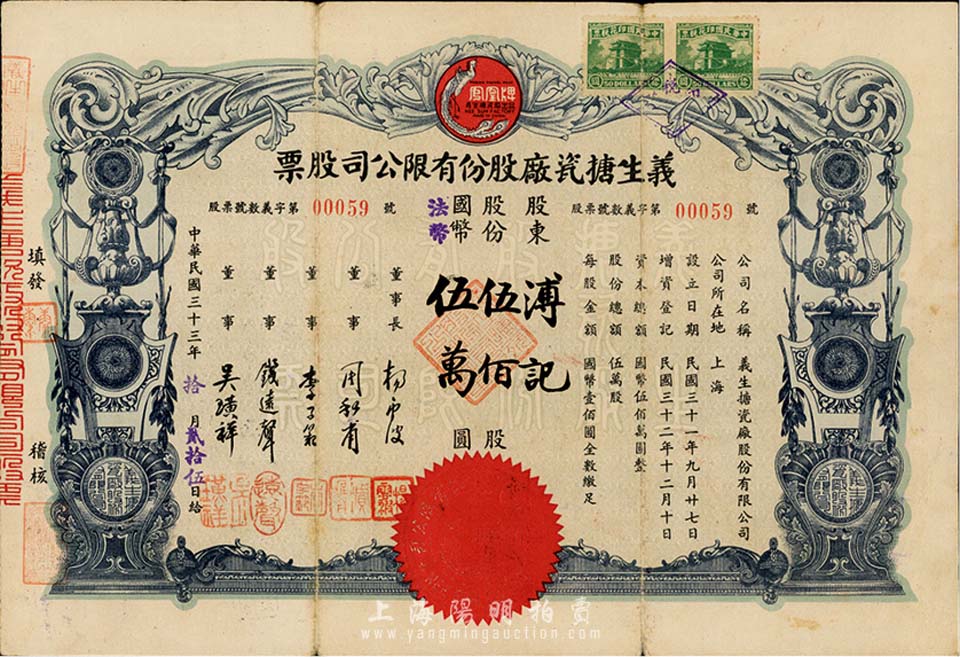 中華民國印花稅票
中華民國印花稅票
50 DOLLARS
50 DOLLARS
鳳凰牌
義生搪瓷廠股份有限公司股票
股票號數義字第 00059 號
股票號數義字第 00059 號
公司名稱 義生搪瓷廠股份有限公司
公司所在地 上海
設立日期 民國三十一年九月廿七日
增資登記 民國三十二年十二月十日
資本總額 國幣伍佰萬圓整
股份總額 伍萬股
每股金額 國幣壹佰圓全數繳足
股東 溥記
股份 伍佰 股
國幣 法幣 伍萬 圓
董事長
董事
董事 李
董事 錢遠聲
董事 吳璜祥
中華民國三十三年 拾 月 貳拾伍 日給
填發
稽核
上海陽明拍賣
www.yangmingauction.com